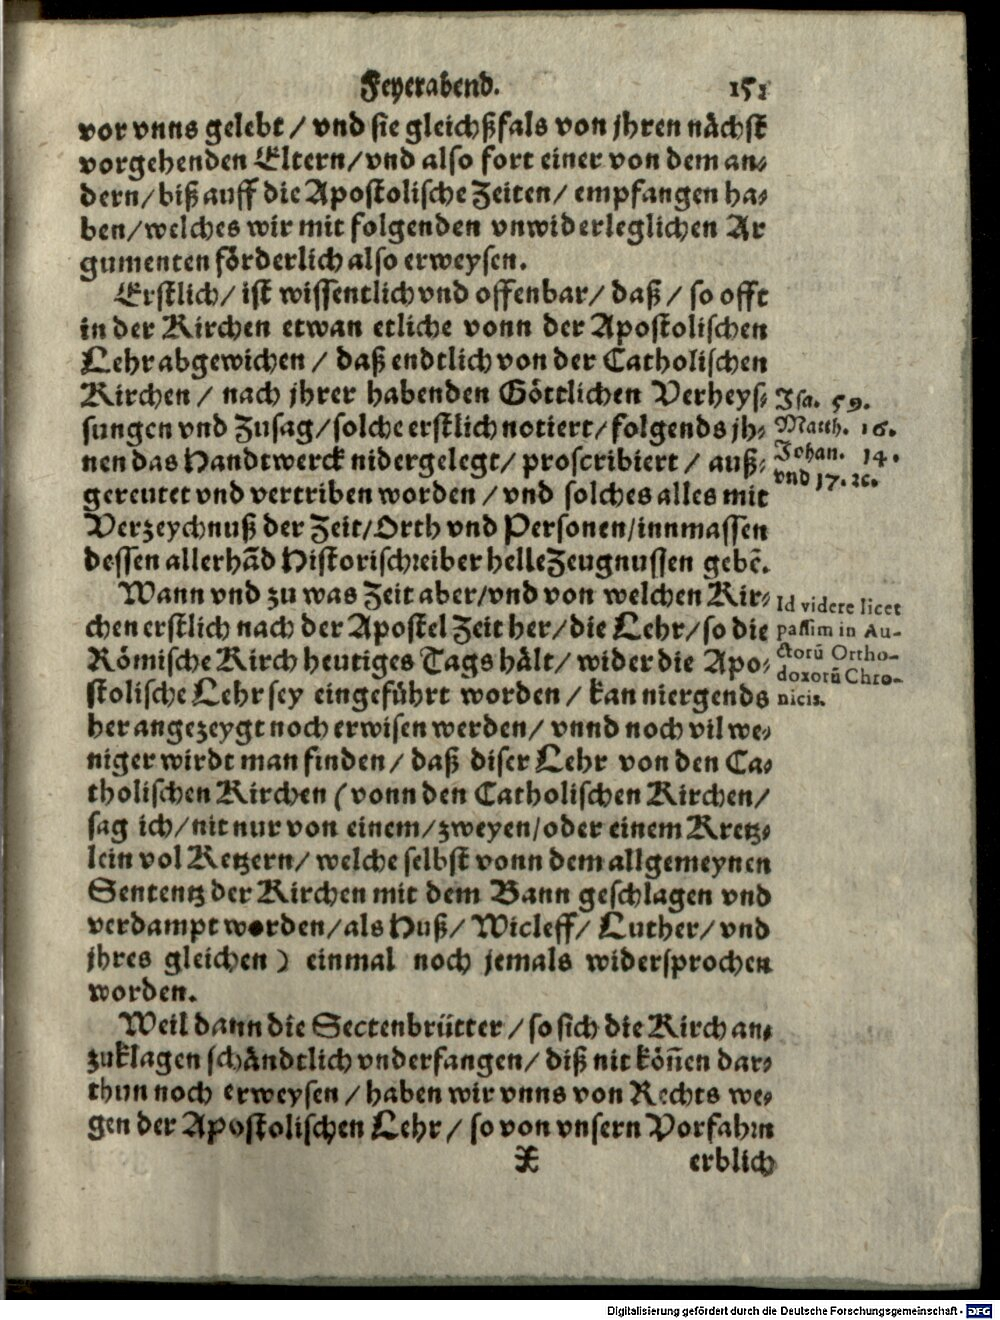 Feyerabend. 151
vor vnns gelebt / vnd sie gleichßfals von jhren nächst
vorgehenden Eltern/vnd also fort einer von dem an-
dern/biß auff die Apostolische Zeiten/ empfangen ha-
ben/welches wir mit folgenden vnwiderleglichen Ar
gumenten förderlich also erweysen.
Erstlich/ ist wissentlich vnd offenbar/ daß / so offt
in der Kirchen etwan etliche vonn der Apostolischen
Lehr abgewichen / daß endtlich von der Catholischen
Kirchen / nach jhrer habenden Göttlichen Verheys-
sungen vnd Zusag/solche erstlich notiert/folgends jh-
nen das Handtwerck nidergelegt/ proscribiert / auß-
gereutet vnd vertriben worden / vnd solches alles mit
Verzeychnuß der Zeit/Orth vnd Personen/innmassen
dessen allerhãd Historischreiber helle Zeugnussen gebẽ.
Isa. 59.
Matth. 16.
Johan. 14.
vnd 17. ꝛc.
Wann vnd zu was Zeit aber/vnd von welchen Kir-
chen erstlich nach der Apostel Zeit her/die Lehr/so die
Römische Kirch heutiges Tags hält/ wider die Apo-
stolische Lehr sey eingeführt worden / kan niergends
her angezeygt noch erwisen werden/ vnnd noch vil we-
niger wirdt man finden/ daß diser Lehr von den Ca-
tholischen Kirchen (vonn den Catholischen Kirchen/
sag ich/nit nur von einem/zweyen/oder einem Kretz-
lein vol Ketzern/ welche selbst vonn dem allgemeynen
Sententz der Kirchen mit dem Bann geschlagen vnd
verdampt worden/als Huß/ Wicleff/ Luther/ vnd
jhres gleichen) einmal noch jemals widersprochen
worden.
Id videre licet
passim in Au-
ctorũ Ortho-
doxorũ Chro-
nicis.
Weil dann die Sectenbrütter / so sich die Kirch an-
zuklagen schändtlich vnderfangen/ diß nit köñen dar-
thun noch erweysen / haben wir vnns von Rechts we-
gen der Apostolischen Lehr / so von vnsern Vorfahrn
X erblich
Digitalisierung gefördert durch die Deutsche Forschungsgemeinschaft - DFG